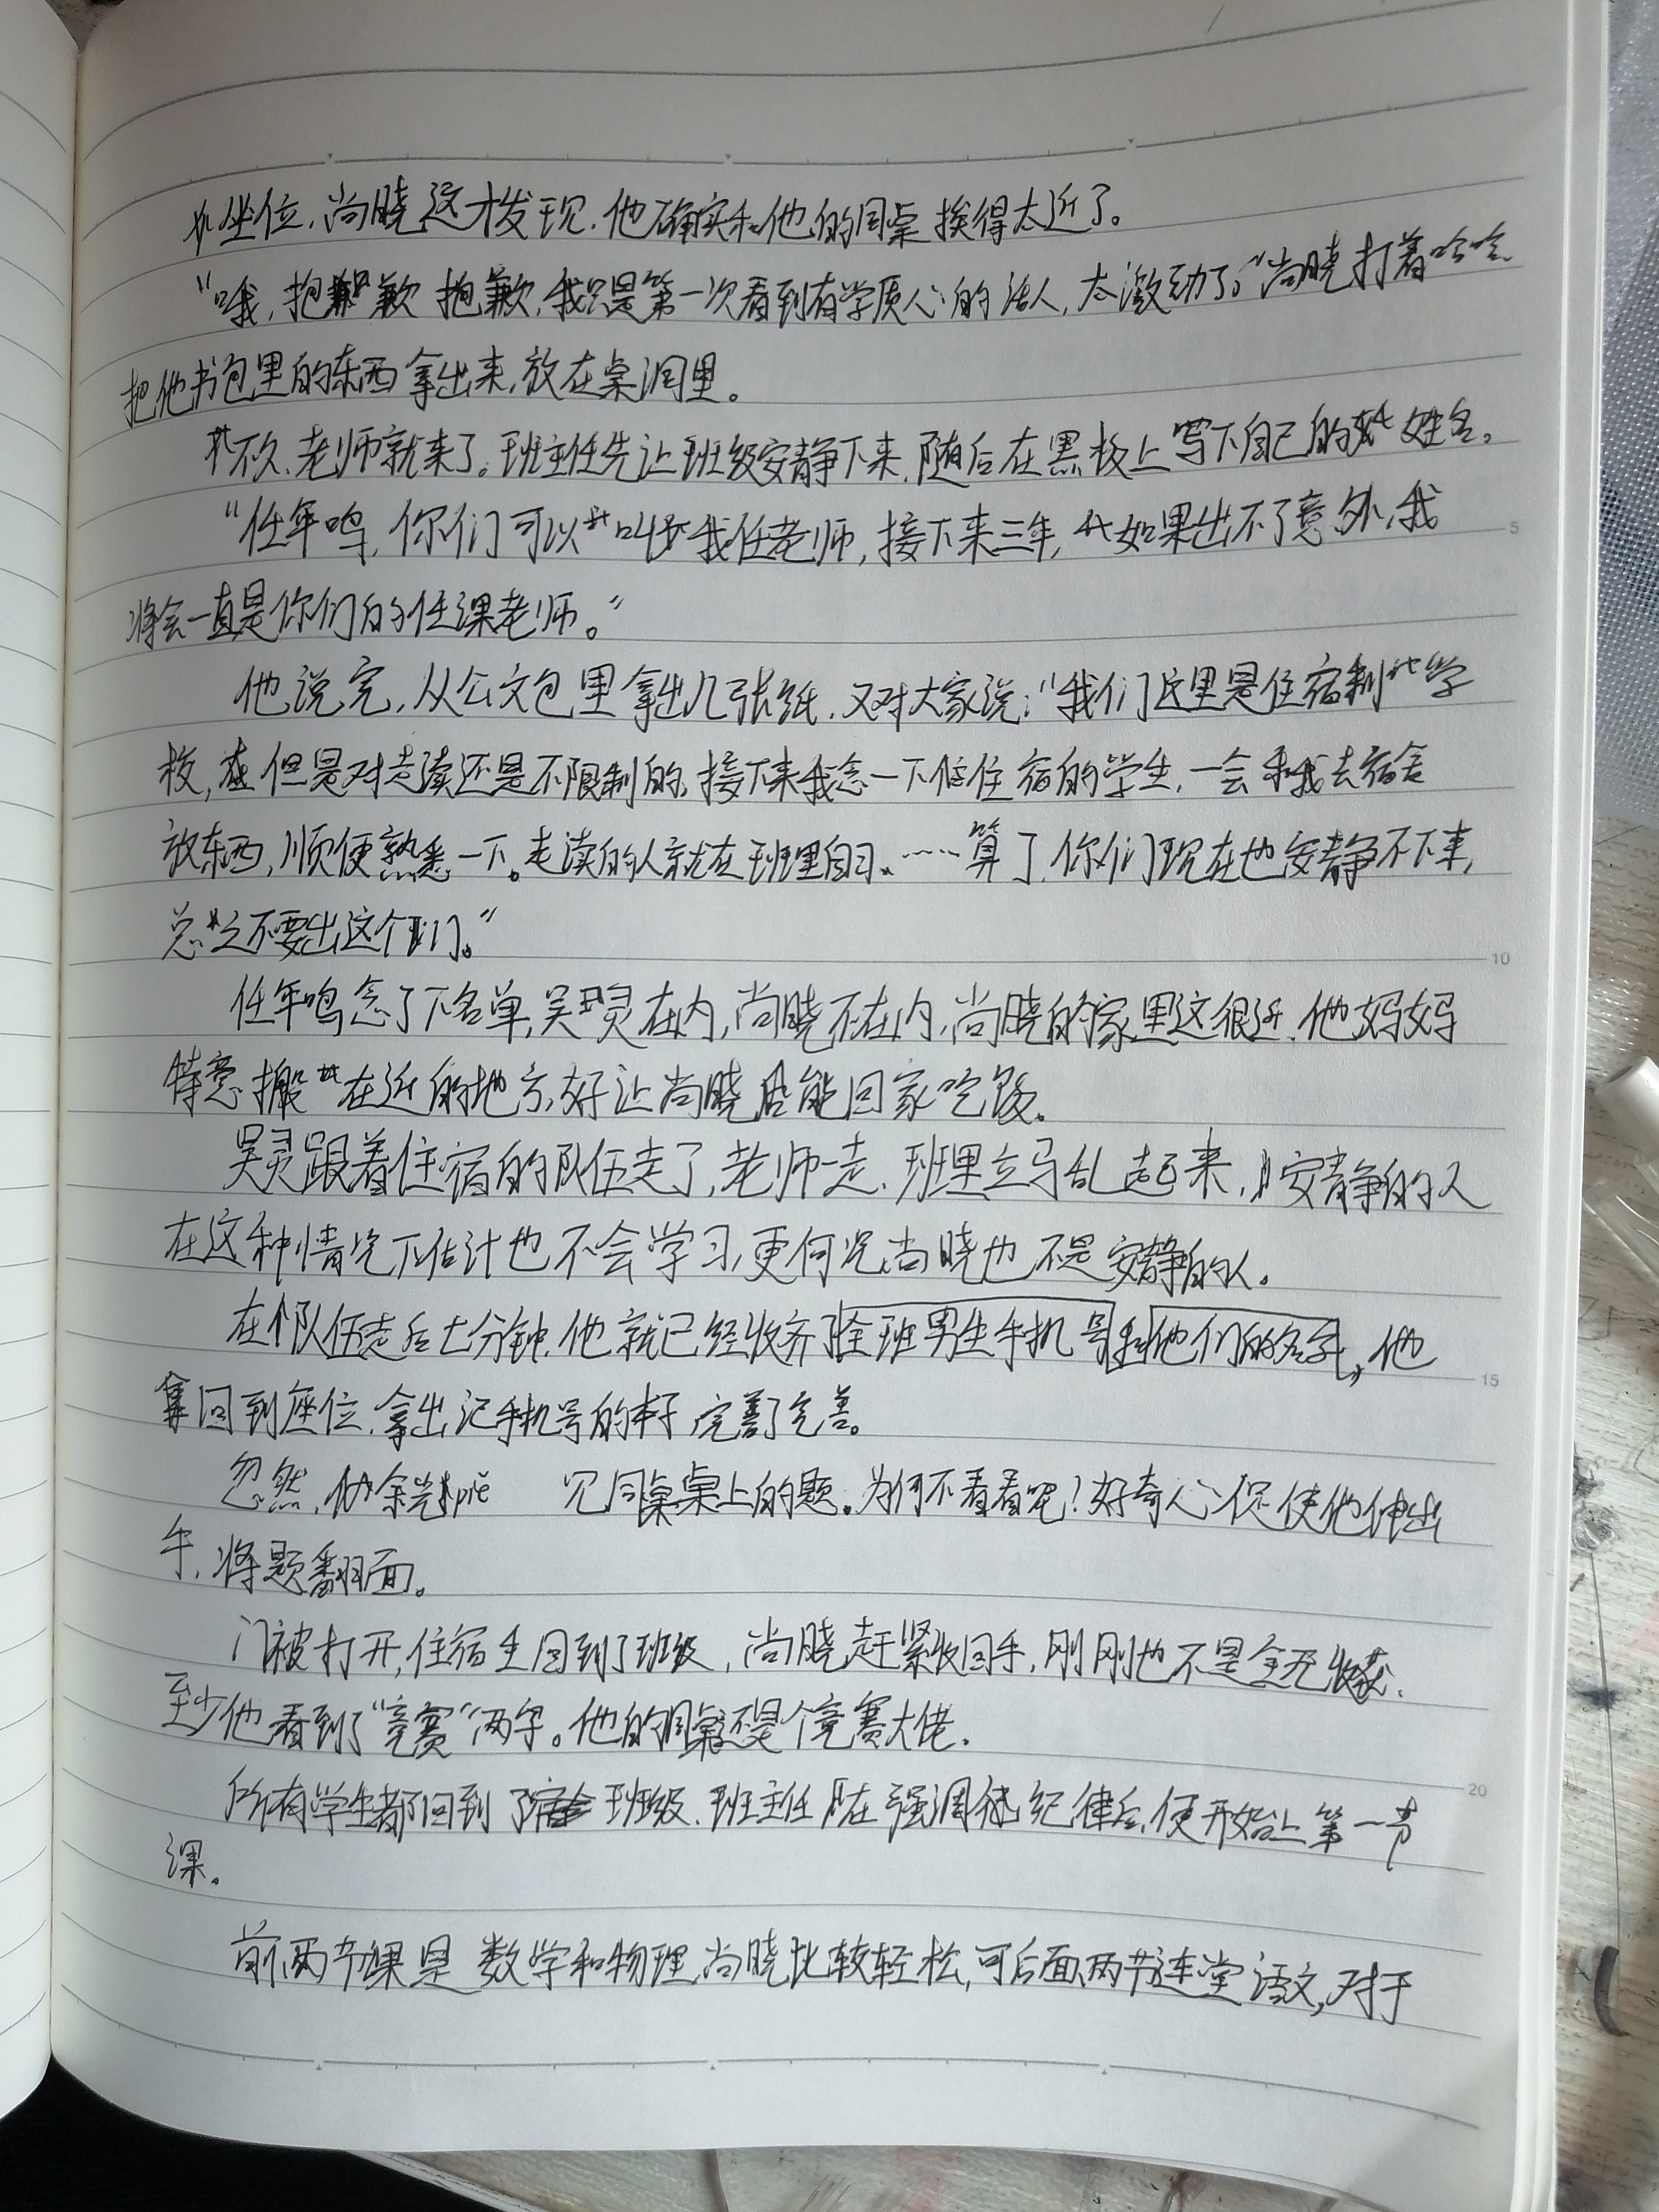 坐位,尚晓这才发现,他确实和他的同桌挨得太近了。
"哦,抱歉抱歉,我只是第一次看到有学质心的活人,太激动了。"尚晓打着哈哈
把他书包里的东西拿出来,放在桌洞里。
不久,老师就来了。班主任先让班级安静下来,随后在黑板上写下自己的姓名。
"任年鸣,你们可以叫我任老师,接下来三年,如果出不了意外,我
将会一直是你们的任课老师。"
他说完,从公文包里拿出几张纸,又对大家说:"我们这里是住宿制学
校,但是对走读还是不限制的,接下来我念一下住宿的学生,一会和我去宿舍
放东西,顺便熟悉一下。走读的人就在班里自习、……算了,你们现在也安静不下来,
总之不要出这个门。"
任年鸣念了下名单,吴灵在内,尚晓不在内,尚晓的家里这很近,他妈妈
特意搬在近的地方,好让尚晓能回家吃饭。
吴灵跟着住宿的队伍走了,老师一走,班里立马乱起来,安静的人
在这种情况下估计也不会学习,更何况尚晓也不是安静的人。
在队伍走后七分钟,他就已经收齐了全班男生手机号和他们的名字,他
回到座位,拿出记手机号的本子,完善了完善。
忽然,他余光piē 见同桌桌上的题。为何不看看呢!好奇心促使他伸出
手,将题翻面。
门被打开,住宿生回到了班级,尚晓赶紧收回手,刚刚也不是全无收获,
至少他看到了"竞赛"两字。他的同桌还是个竞赛大佬。
所有学生都回到了班级,班主任在强调纪律后,便开始上第一节
课。
前两节课是数学和物理,尚晓比较轻松,可后面两节连堂语文,对于